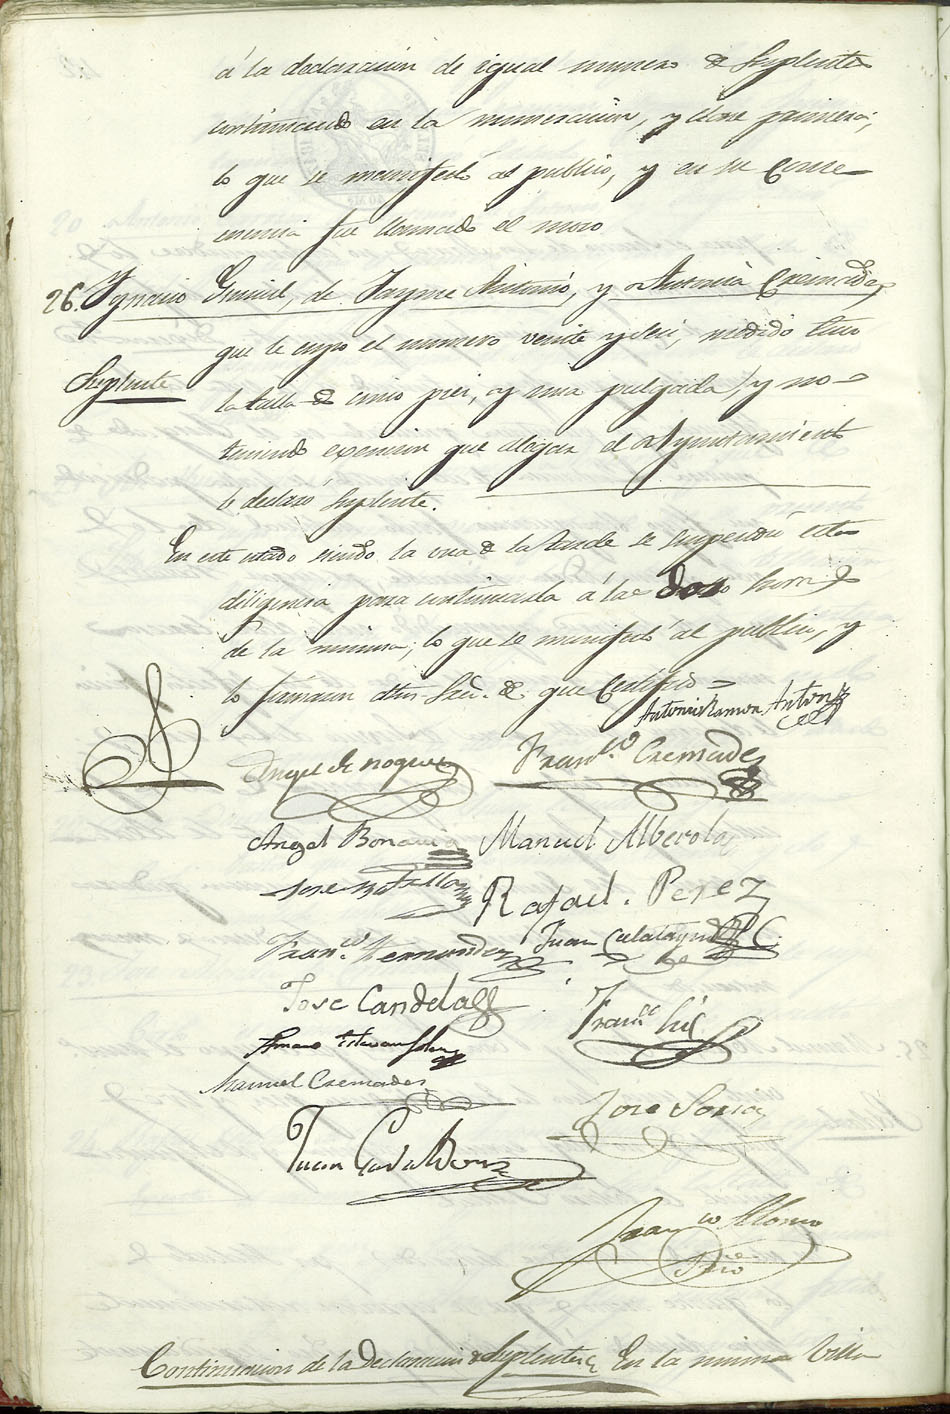 á la declaracion de igual numero de Suplentes
continuando en la numeracion, y clase primera;
lo que se manifestó al publico, y en su conse
cuencia fue llamado el mozo
26. Ygnacio Guiuil, de Jayme Antonio, y Antonia Cremades,
que le cupo el numero veinte y seis, medido tuvo
Suplente
la talla de cinco pies, y una pulgada, y no
teniendo exencion que alegar el Ayuntamiento
lo declaró Suplente.
En este estado siendo la una de la tarde se suspendió esta
diligencia para continuarla á las dos horas
de la misma; lo que se manifestó al publico, y
lo firmaron dhos. Sres. de que Certifico =
Antonio Ramon Anton
Angel de Noguera
Franco. Cremades
Angel Bonavia
Manuel Alberola
Jose Botella
Rafael Perez
Franco. Hernandez
Juan Calatayud
Jose Candela
Franco. Gil
Manuel Cremades
Jose Soria
Juan
Franco Alonso
Srio
Continuacion de la Declaracion de Suplentes. En la misma Villa